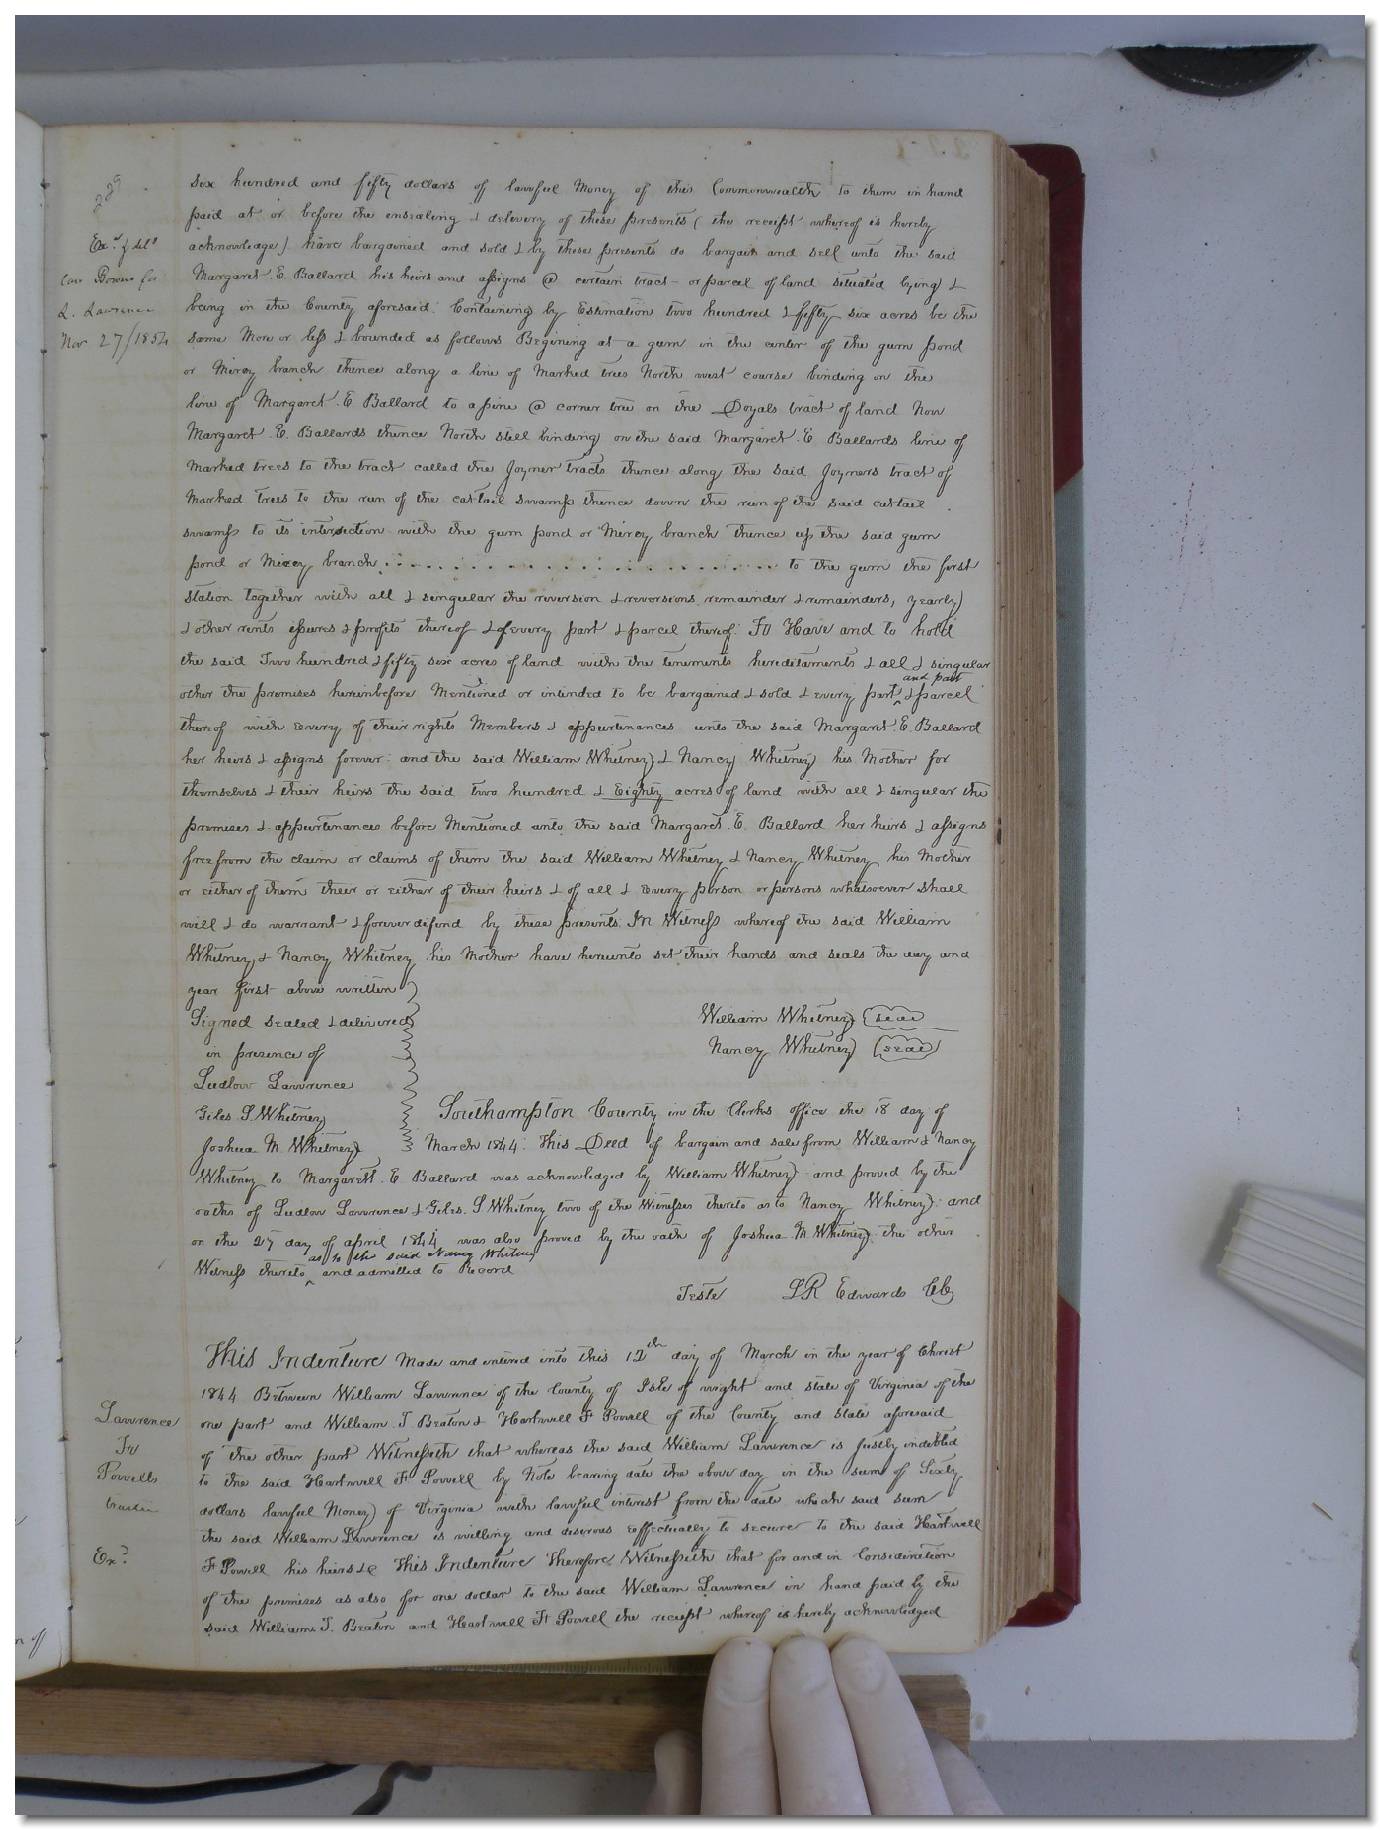 229
Six hundred and fifty dollars of lawful Money of this Commonwealth to them in hand
paid at or before the ensealing & delivery of these presents (the receipt whereof is hereby
Exd. & deld
acknowledge) have bargained and sold & by these presents do bargain and sell unto the said
Margaret. E. Ballard his heirs and assigns @ certain tract or parcel of land situated lying &
L. Lawrence
being in the County aforesaid. Containing by Estimation two hundred & fifty six acres be the
Nov 27/1854
same More or less & bounded as follows Begining at a gum in the center of the gum pond
or Mirey branch thence along a line of Marked trees North west course binding on the
line of Margaret. E Ballard to a pine @ corner tree on the Doyals tract of land Now
Margaret. E. Ballards thence North still binding on the said Margaret. E Ballards line of
Marked trees to the tract called the Joyner tracts thence along the said Joyners tract of
Marked trees to the run of the cattail swamp thence down the run of the said cattail
swamp to its intersection with the gum pond or Mirey branch thence up the said gum
pond or Mirey branch . . . . . . . . . . . . . . . . . . . . . . . to the gum the first
station together with all & singular the reversion & reversions remainder & remainders, yearly
& other rents issues & profits thereof & of every part & parcel thereof. To Have and to hold
the said Two hundred & fifty six acres of land with the tenements hereditaments & all & singular
and part
other the premises hereinbefore Mentioned or intended to be bargained & sold & every part ^ & parcel
thereof with every of their rights Members & appurtinances unto the said Margaret. E. Ballard
her heirs & assigns forever. and the said William Whitney & Nancy Whitney his Mother for
themselves & their heirs the said two hundred & Eighty acres of land with all & singular the
premises & appurtinances before Mentioned unto the said Margaret. E. Ballard her heirs & assigns
free from the claim or claims of them the said William Whitney & Nancy Whitney his Mother
or either of them their or either of their heirs & of all & every person or persons whatsoever shall
will & do warrant & forever defend by these presents. In Witness whereof the said William
Whitney & Nancy Whitney his Mother have hereunto set their hands and seals the day and
year first above written
Signed sealed & delivered
William Whitney seal
in presence of
Nancy Whitney seal
Ludlow Lawrence
Giles S. Whitney
Southampton County in the Clerks office the 18 day of
Joshua M. Whitney
March 1844. This Deed of bargain and sale from William & Nancy
Whitney to Margarett. E Ballard was acknowledged by William Whitney and proved by the
oaths of Ludlow Lawrence & Giles. S Whitney two of the Witnesses thereto as to Nancy Whitney. and
on the 27 day of april 1844 was also proved by the oath of Joshua M. Whitney the other
as to the said Nancy Whitney
Witness thereto ^ and admitted to Record
Teste L R Edwards Clk
This Indenture Made and entered into this 12th day of March in the year of Christ
1844 Between William Lawrence of the County of Isle of wight and state of Virginia of the
Lawrence
one part and William. J. Beaton & Hartwell F Powell of the County and state aforesaid
To
of the other part Witnesseth that whereas the said William Lawrence is justly indebted
Powells
to the said Hartwell F Powell by Note bearing date the above day in the sum of Sixty
trustee
dollars lawful Money of Virginia with lawful interest from the date which said sum
the said William Lawrence is willing and desirous effectually to secure to the said Hartwell
Exd.
F Powell his heirs &c This Indenture Therefore Witnesseth that for and in Consideration
of the premises as also for one dollar to the said William Lawrence in hand paid by the
said William. J. Beaton and Hartwell F Powell the receipt whereof is hereby acknowledged